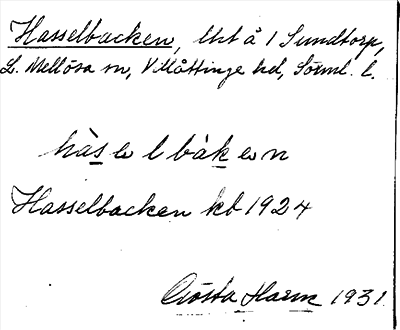 Hasselbacken, lht å 1 Sundtorp,
L. Mellösa sn, Villåttinge hd, Sörml. l.
hàsəlbàkən
Hasselbacken kb 1924
Gösta Harm 1931.